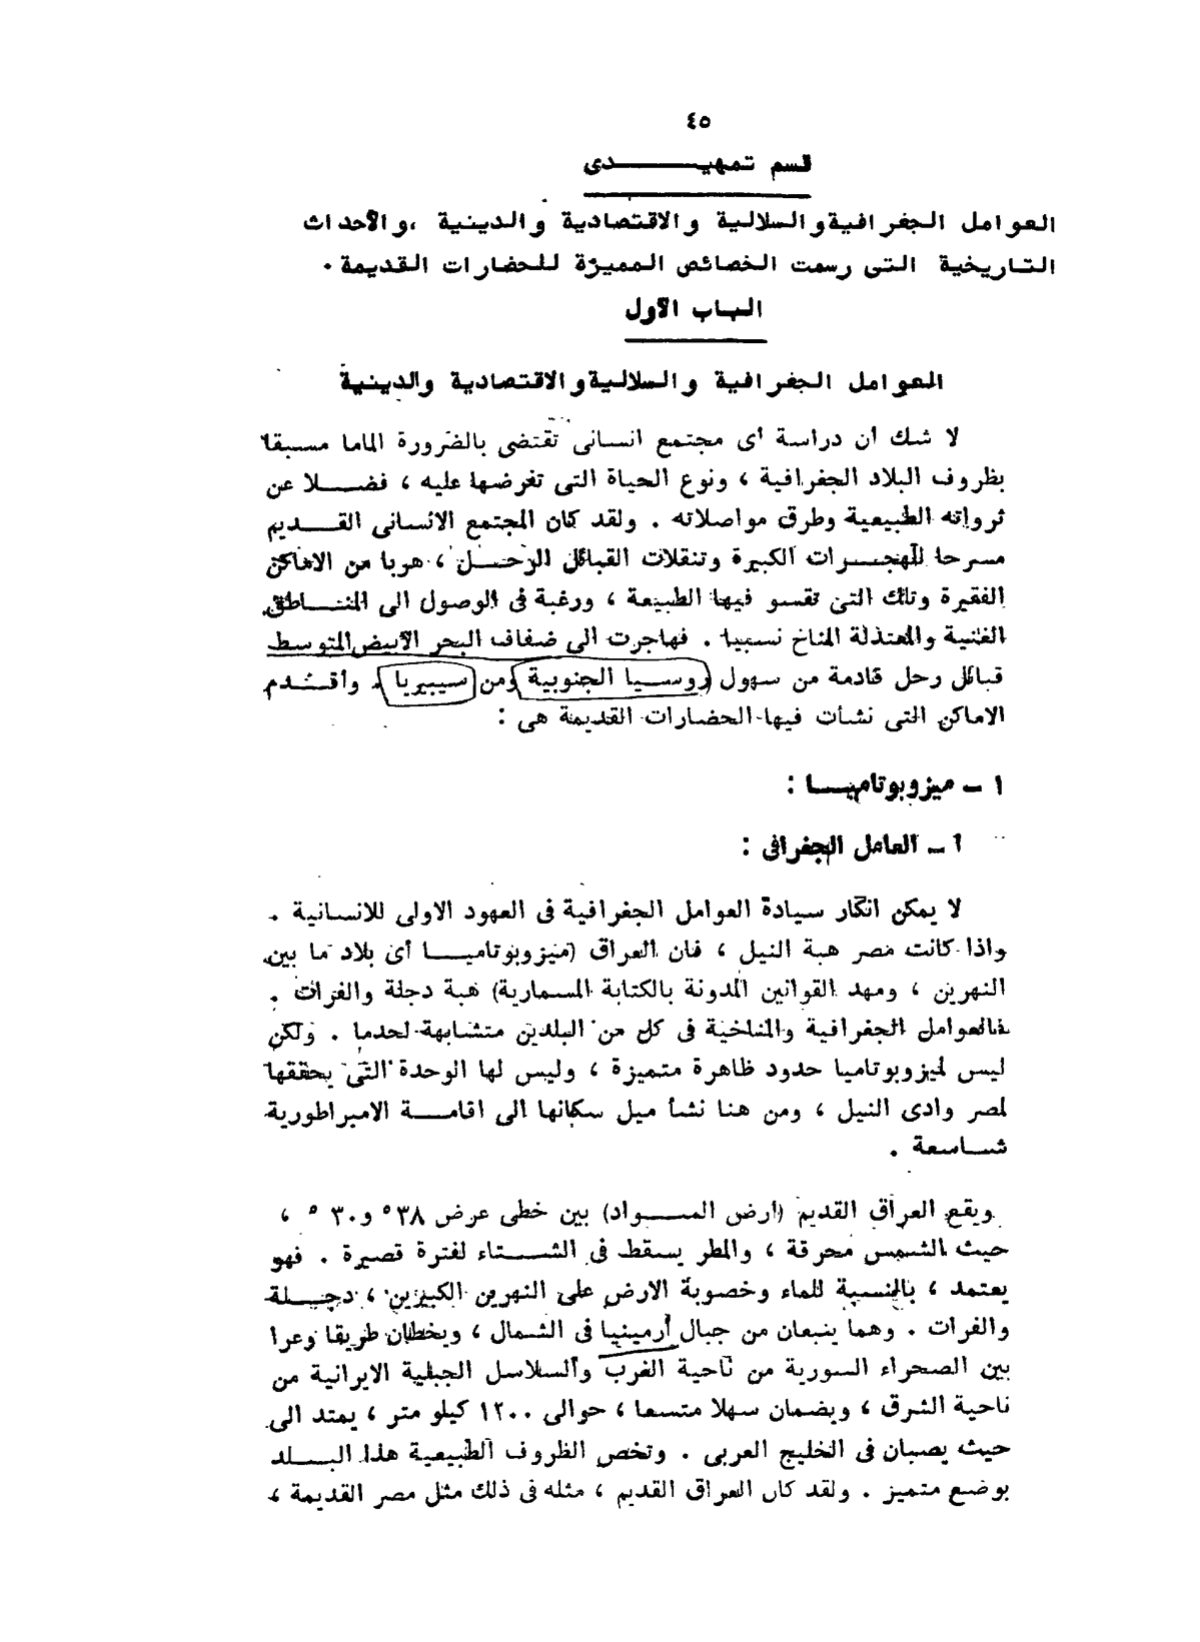 ٤٥
قسم تمهيـــــــدى
العوامل الجغرافية والسلالية والاقتصادية والدينية ، والأحداث
التاريخية التى رسمت الخصائص المميزة للحضارات القديمة .
الباب الأول
العوامل الجغرافية والسلالية والاقتصادية والدينية
لا شك أن دراسة أى مجتمع انسانى تقتضى بالضرورة الماما مسبقا
بظروف البلاد الجغرافية ، ونوع الحياة التى تفرضها عليه ، فضـــلا عن
ثرواته الطبيعية وطرق مواصلاته . ولقد كان المجتمع الانسانى القـــديم
مسرحا للهجـــرات الكبيرة وتنقلات القبائل الرحـــل ، هربا من الاماكن
الفقيرة وتلك التى تقسو فيها الطبيعة ، ورغبة فى الوصول الى المنـــاطق
الغنية والمعتدلة المناخ نسبيا . فهاجرت الى ضفاف البحر الأبيض المتوسط
قبائل رحل قادمة من سهول روسـيا الجنوبية ومن سيبيريا . وأقـــدم
الاماكن التى نشأت فيها الحضارات القديمة هى :
١ – ميزوبوتاميـــا :
أ – العامل الجغرافى :
لا يمكن انكار سيادة العوامل الجغرافية فى العهود الاولى للانسانية .
واذا كانت مصر هبة النيل ، فان العراق (ميزوبوتاميـــا أى بلاد ما بين
النهرين ، ومهد القوانين المدونة بالكتابة المسمارية) هبة دجلة والفرات .
فالعوامل الجغرافية والمناخية فى كل من البلدين متشابهة لحدما . ولكن
ليس لميزوبوتاميا حدود ظاهرة متميزة ، وليس لها الوحدة التى يحققها
لمصر وادى النيل ، ومن هنا نشأ ميل سكانها الى اقامـــة الامبراطورية
شـــاسعة .
ويقع العراق القديم (أرض الســـواد) بين خطى عرض ٣٨° و٣٠° ،
حيث الشمس محرقة ، والمطر يسقط فى الشـــتاء لفترة قصيرة . فهو
يعتمد ، بالنسبة للماء وخصوبة الارض على النهرين الكبيرين ، دجـــلة
والفرات . وهما ينبعان من جبال أرمينيا فى الشمال ، ويخطان طريقا وعرا
بين الصحراء السورية من ناحية الغرب والسلاسل الجبلية الايرانية من
ناحية الشرق ، ويضمان سهلا متسعا ، حوالى ١٢٠٠ كيلو متر ، يمتد الى
حيث يصبان فى الخليج العربى . وتخص الظروف الطبيعية هذا البـــلد
بوضع متميز . ولقد كان العراق القديم ، مثله فى ذلك مثل مصر القديمة ،